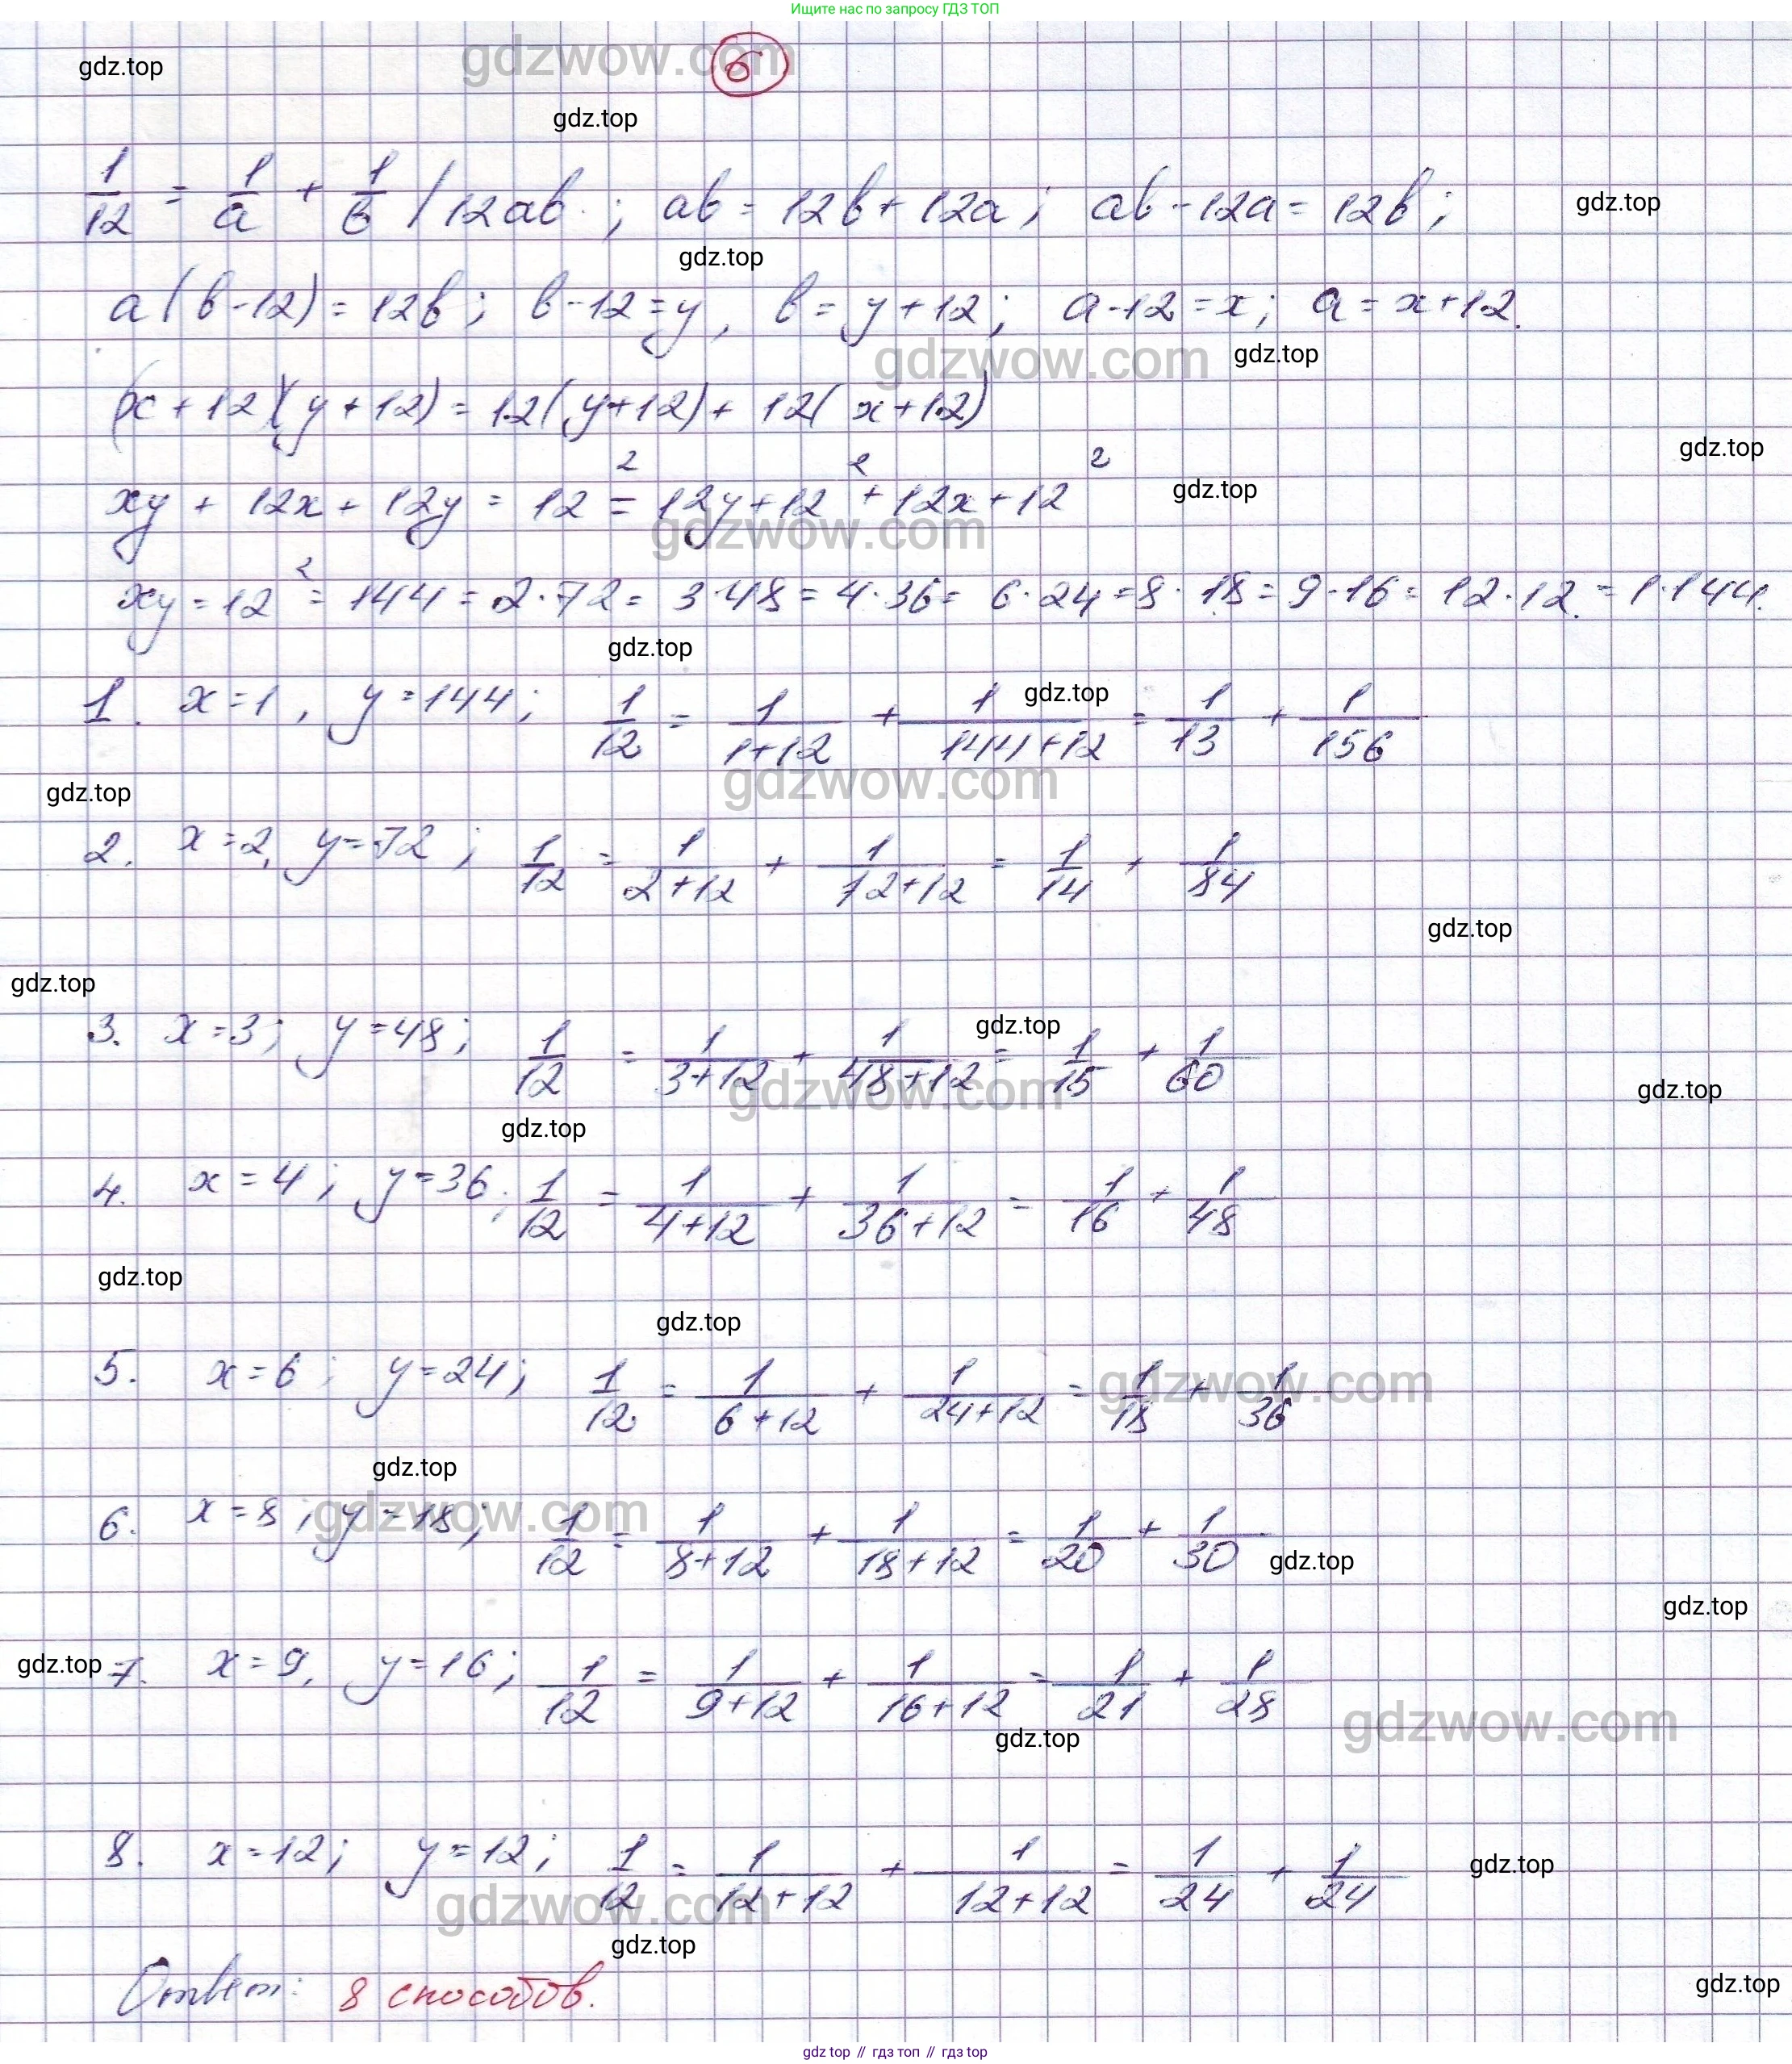 Ищите нас по запросу ГДЗ ТОП
gdzwow.com 6
gdz.top
gdz.top
1/12 = 1/a + 1/b / 12ab ; ab = 12b + 12a ; ab - 12a = 12b ;
gdz.top
gdz.top
a(b-12) = 12b ; b-12 = y , b = y+12 ; a-12 = x ; a = x+12.
gdzwow.com gdz.top
(x+12)(y+12) = 12(y+12) + 12(x+12)
gdz.top
xy + 12x + 12y = 12² = 12y + 12² + 12x + 12²
gdz.top
gdzwow.com
xy = 12² = 144 = 2·72 = 3·48 = 4·36 = 6·24 = 8·18 = 9·16 = 12·12 = 1·144.
gdz.top
1. x=1, y=144; 1/12 = 1/(1+12) + 1/(144+12) = 1/13 + 1/156
gdz.top
gdzwow.com
gdz.top
2. x=2, y=72; 1/12 = 1/(2+12) + 1/(72+12) = 1/14 + 1/84
gdz.top
gdz.top
3. x=3; y=48; 1/12 = 1/(3+12) + 1/(48+12) = 1/15 + 1/60
gdz.top
gdzwow.com
gdz.top
gdz.top
4. x=4; y=36; 1/12 = 1/(4+12) + 1/(36+12) = 1/16 + 1/48
gdz.top
gdz.top
5. x=6; y=24; 1/12 = 1/(6+12) + 1/(24+12) = 1/18 + 1/36
gdzwow.com
gdz.top
6. x=8; y=18; 1/12 = 1/(8+12) + 1/(18+12) = 1/20 + 1/30
gdzwow.com
gdz.top
gdz.top
gdz.top
7. x=9, y=16; 1/12 = 1/(9+12) + 1/(16+12) = 1/21 + 1/28
gdzwow.com
gdz.top
8. x=12; y=12; 1/12 = 1/(12+12) + 1/(12+12) = 1/24 + 1/24
gdz.top
gdzwow.com
gdz.top
Ответ: 8 способов.
gdz.top
gdz top // гдз топ // gdz top